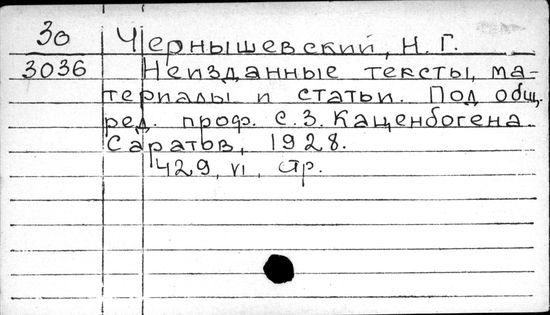 30 Чернышевский, Н. Г.
3036 Неизданные тексты, ма-
териалы и статьи. Под общ.
ред. проф. С. З. Каценбогена.
Саратов, 1928.
429, VI, стр.